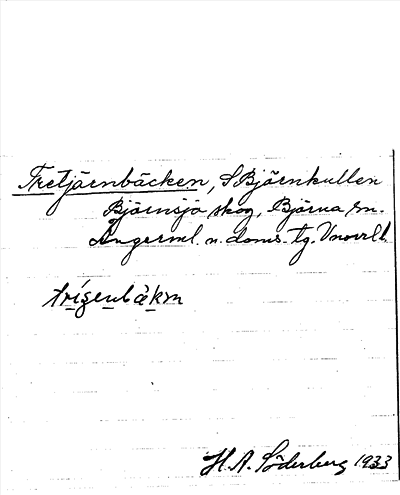 Tretjärnbäcken, S Björnkullen
Björnsjö skog, Björna sn.
Ångerml. n. doms. tg. Vnorrl l.
trízenbàkm
H.A. Söderberg 1933